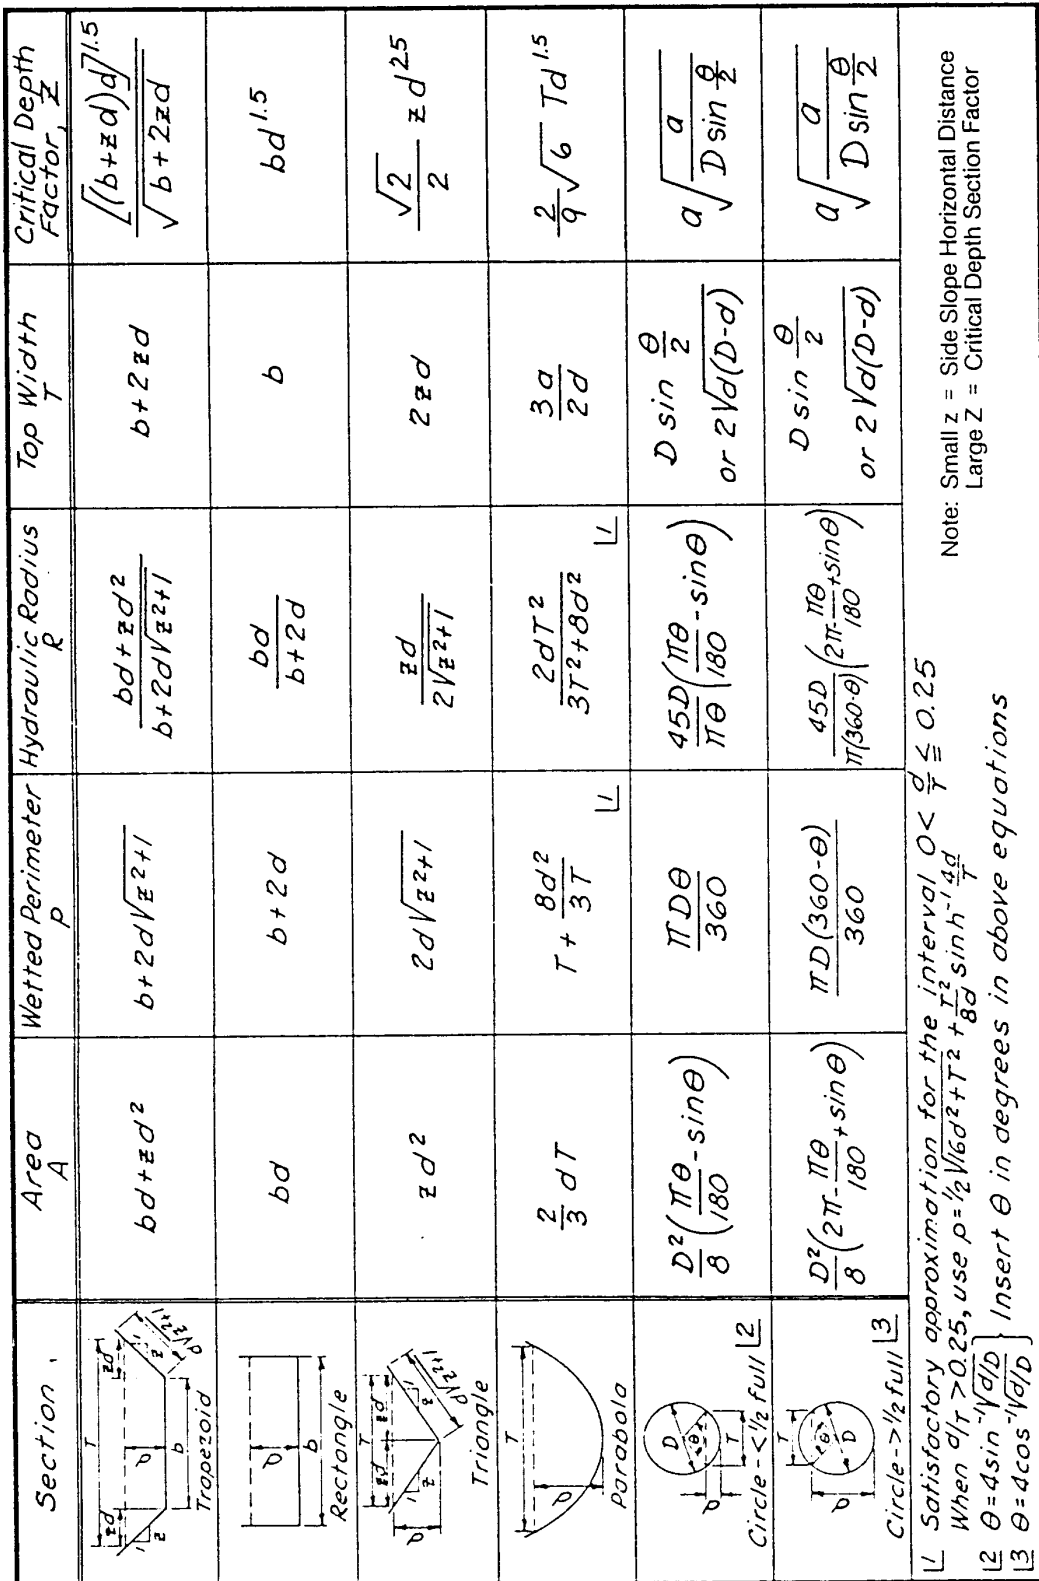 Section
Area
A
Wetted Perimeter
P
Hydraulic Radius
R
Top Width
T
Critical Depth
Factor, Z
T
zd
zd
1
z
d
b
1
z
d√z²+1
Trapezoid
bd+zd²
b+2d√z²+1
bd+zd² / b+2d√z²+1
b+2zd
[(b+zd)d]^1.5 / √b+2zd
d
b
Rectangle
bd
b+2d
bd / b+2d
b
bd^1.5
T
zd
zd
1
z
d
1
z
d√z²+1
Triangle
zd²
2d√z²+1
zd / 2√z²+1
2zd
√2/2 zd^2.5
T
d
Parabola
2/3 dT
T+ 8d²/3T |1
2dT² / 3T²+8d² |1
3a/2d
2/9 √6 Td^1.5
D
θ
d
T
Circle-<1/2 full |2
D²/8 (πθ/180 -sinθ)
πDθ/360
45D/πθ (πθ/180 -sinθ)
D sin θ/2
or 2√d(D-d)
a√ a / D sin θ/2
T
θ
D
d
Circle->1/2 full |3
D²/8 (2π- πθ/180 +sinθ)
πD(360-θ)/360
45D/π(360-θ) (2π- πθ/180 +sinθ)
D sin θ/2
or 2√d(D-d)
a√ a / D sin θ/2
|1 Satisfactory approximation for the interval 0< d/T ≦ 0.25
When d/T >0.25, use p=1/2√16d²+T² + T²/8d sinh⁻¹ 4d/T
|2 θ=4sin⁻¹√d/D
|3 θ=4cos⁻¹√d/D } Insert θ in degrees in above equations
Note: Small z = Side Slope Horizontal Distance
Large Z = Critical Depth Section Factor